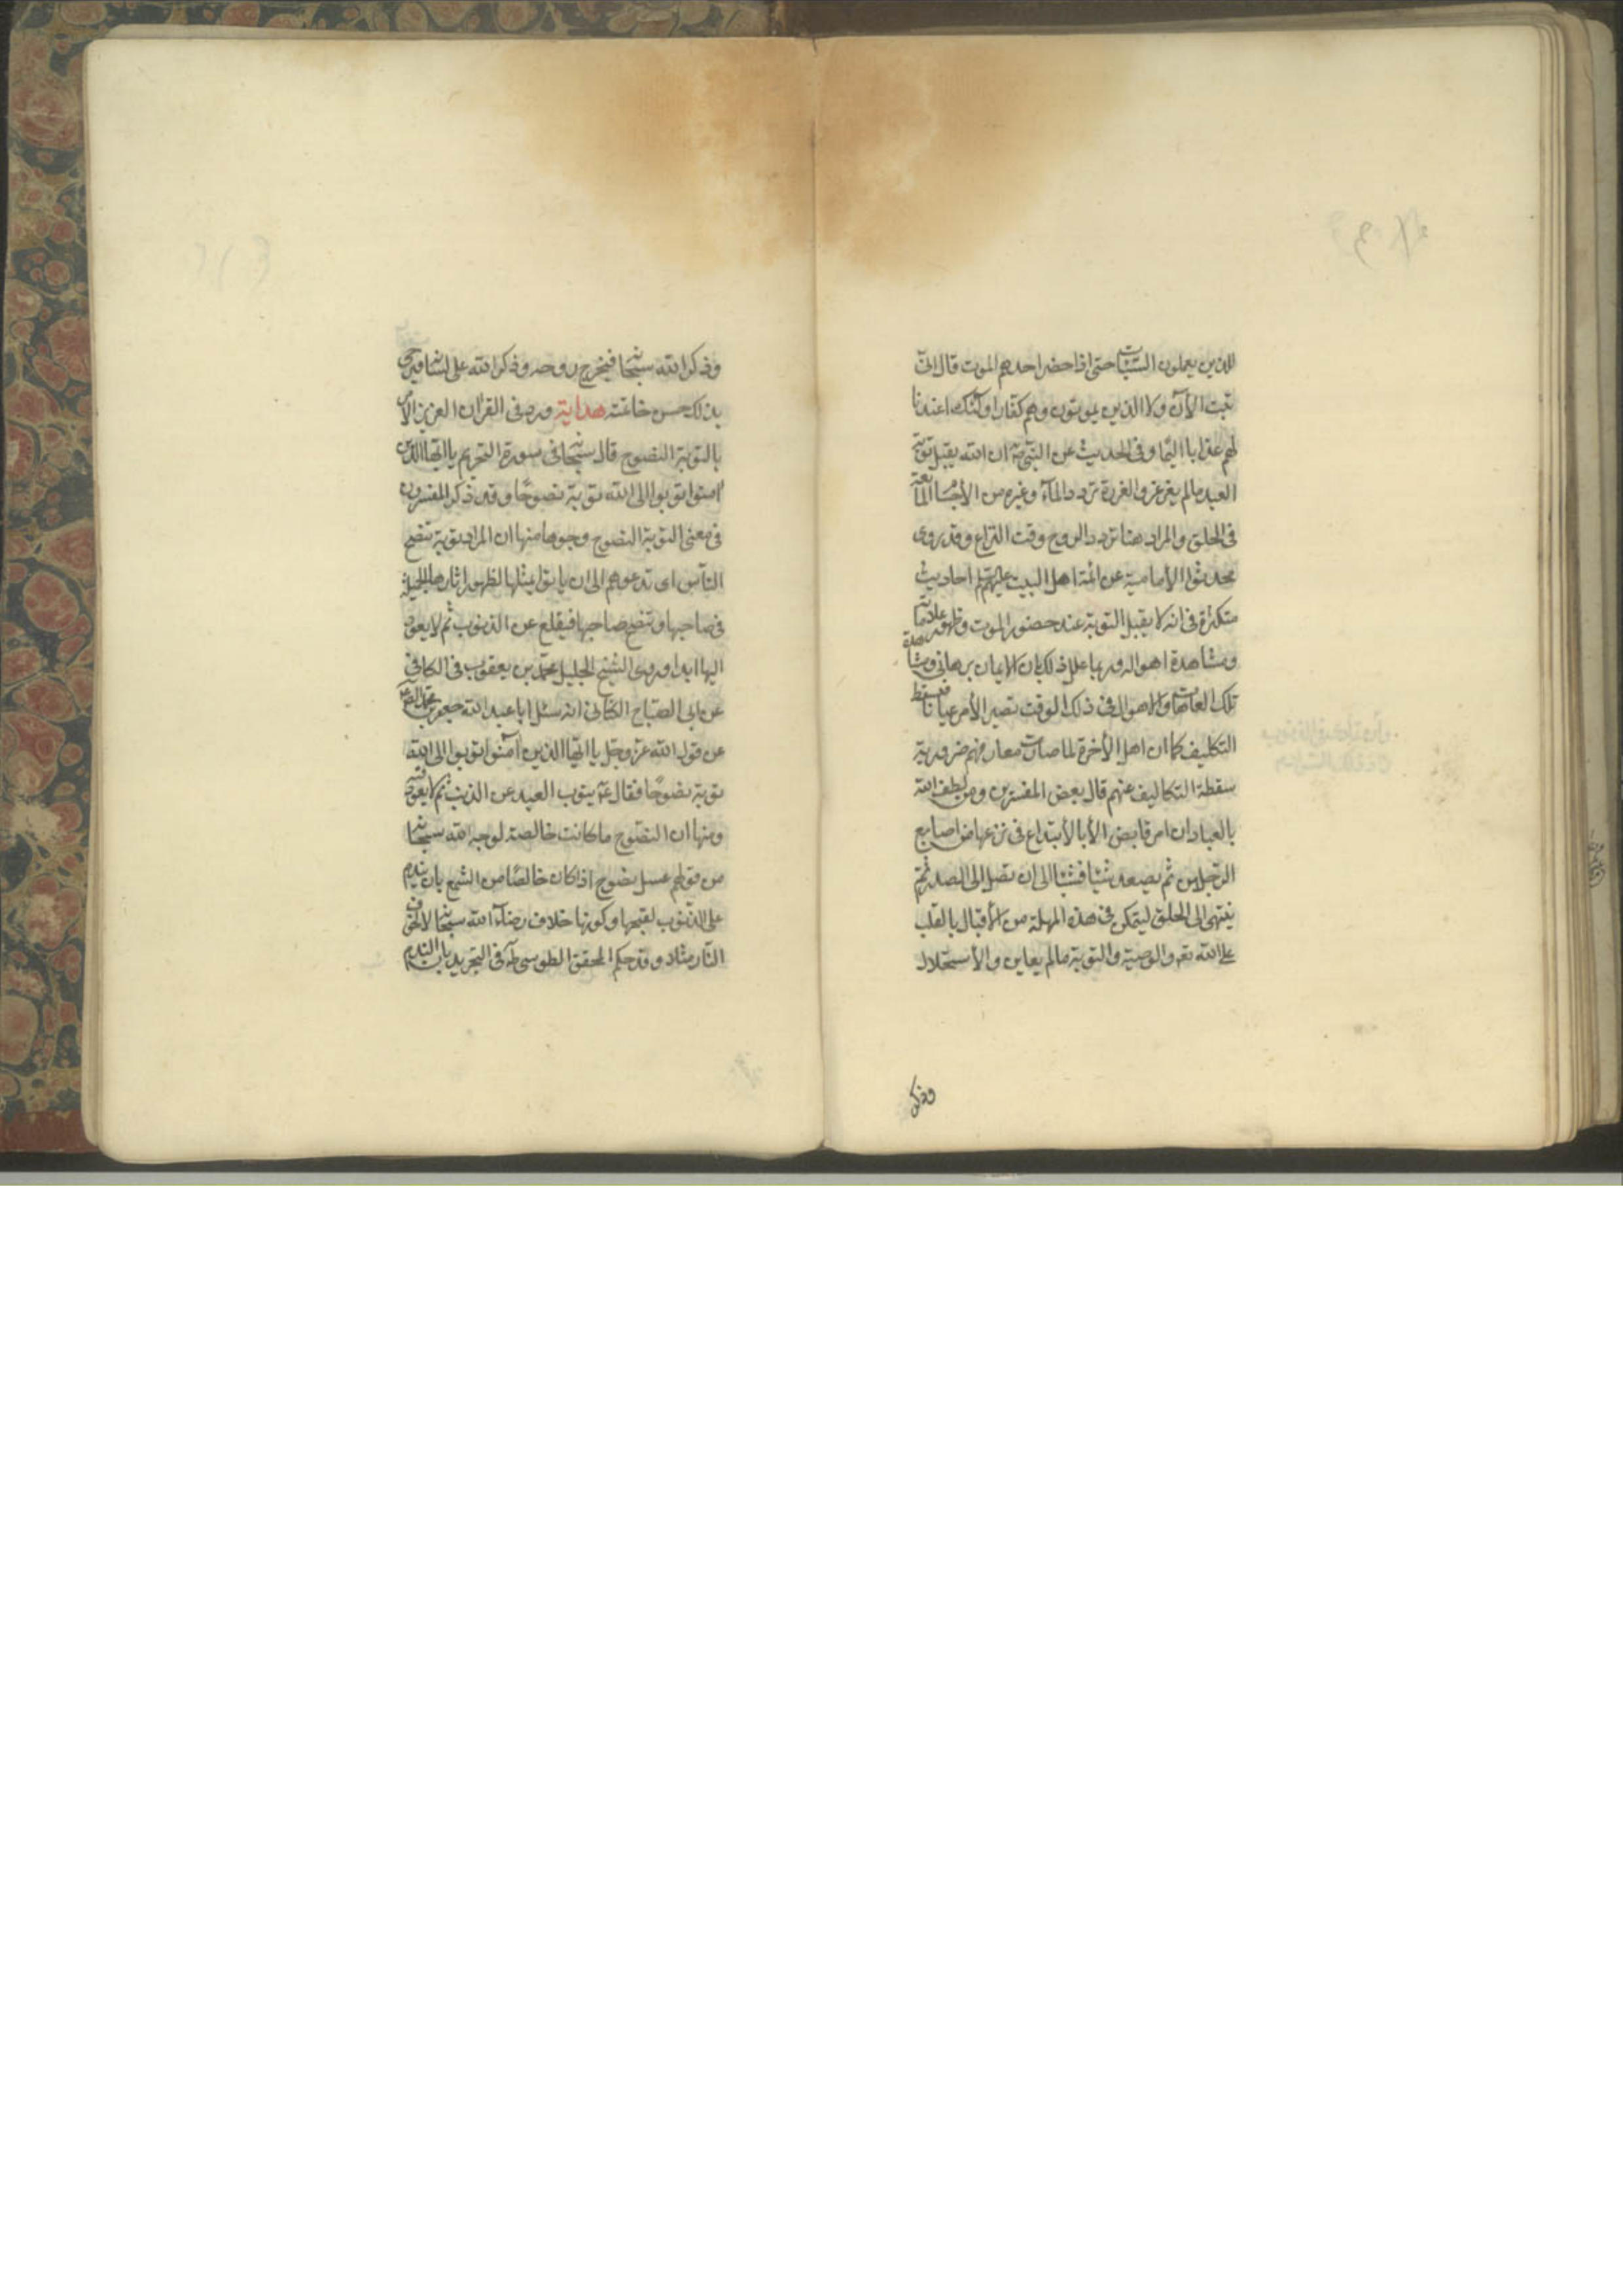 للذين يعملون السيئات حتى اذا حضر احدهم الموت قال انى
تبت الآن ولا الذين يموتون وهم كفار اولئك اعتدنا
لهم عذابا اليما وفى الحديث عن النبى صۤ ان الله يقبل توبة
العبد مالم يغرغر والغرغرة تردد المآء وغيره من الأجسام المايعة
فى الحلق والمراد هنا تردد الروح وقت النزاع وقد روى
محدثوا الأمامية عن ائمة اهل البيت عليهم احاديث
متكثرة فى انه لا يقبل التوبة عند حضور الموت وظهور علاماته
ومشاهدة اهواله وربما علل ذلك بان الايمان برهانى ومشاهدة
تلك العلامات والاهوال فى ذلك الوقت تصير الأمر عيانا فيسقط
التكليف كما ان اهل الأخرة لما صارت معارفهم ضرورية
سقطة التكاليف عنهم قال بعض المفسرين ومن لطف الله
بالعباد ان امر قابض الأبالأبتداع فى نزعها من اصابع
الرجلين ثم يصعد شيئا فشيئا الى ان تصل الى الصدر ثم
ينتهى الى الحلق ليتمكن فى هذه المهلة من الأقبال بالقلب
على الله تعۤ والوصية والتوبة مالم يعاين والأستحلال
وذكر
وذكر الله سبحانه فيخرج روحه وذكر الله على لسانه فيرجى
بذلك حسن خاتمته هداية ورد فى القران العزيز الأمر
بالتوبة النصوح قال سبحانه فى سورة التحريم يا ايها الذين
امنوا توبوا الى الله توبة نصوحًا وقد ذكر المفسرون
فى معنى التوبة النصوح وجوها منها ان المراد توبة تنصح
الناس اى تدعوهم الى ان ياتوا بمثلها لظهور اثارها الجميلة
فى صاحبها وتنصح صاحبها فيقلع عن الذنوب ثم لا يعود
اليها ابدا وروى الشيخ الجليل محمد بن يعقوب فى الكافى
عن ابى الصباح الكنانى انه سئل ابا عبد الله جعفر بن محمد الصۤ عۤ
عن قول الله عز وجل يا ايها الذين آمنوا توبوا الى الله
توبة نصوحًا فقال عۤ يتوب العبد عن الذنب ثم لا يعود فيه
ومنها ان النصوح ما كانت خالصة لوجه الله سبحانه
من قولهم عسل نصوح اذا كان خالصًا من الشمع بان يندم
على الذنوب لقبحها وكونها خلاف رضآء الله سبحانه لا لخوف
النار مثلا وقد حكم المحقق الطوسى طۤه فى التجريد بان الندم